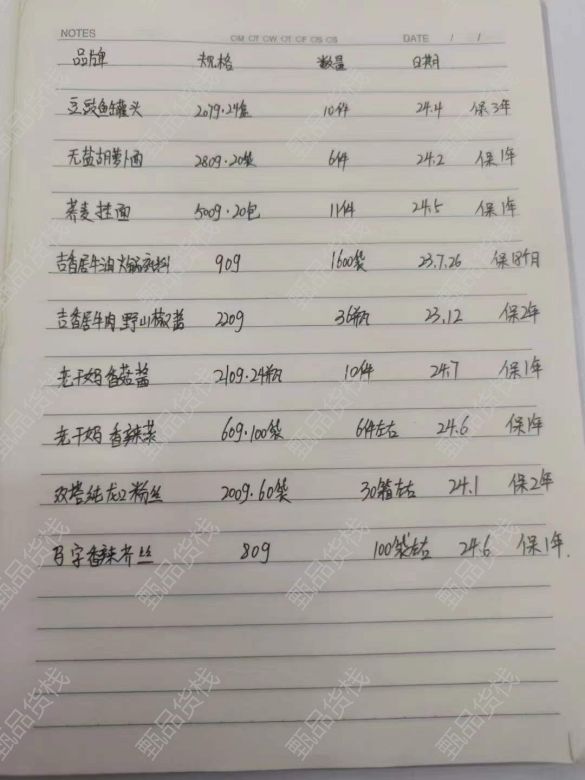 NOTES
DATE / /
品牌 规格 数量 日期
豆豉鱼罐头 207g·24盒 10件 24.4 保3年
无盐胡萝卜面 280g·20袋 6件 24.2 保1年
荞麦挂面 500g·20包 11件 24.5 保1年
吉香居牛油火锅底料 90g 1600袋 23.7.26 保18个月
吉香居牛肉野山椒酱 220g 36瓶 23.12 保2年
老干妈香菇酱 210g·24瓶 10件 24.7 保1年
老干妈香辣菜 60g·100袋 6件左右 24.6 保1年
双塔纯龙口粉丝 200g·60袋 30箱左右 24.1 保2年
字香辣芥丝 80g 100袋左右 24.6 保1年.
甄品货栈